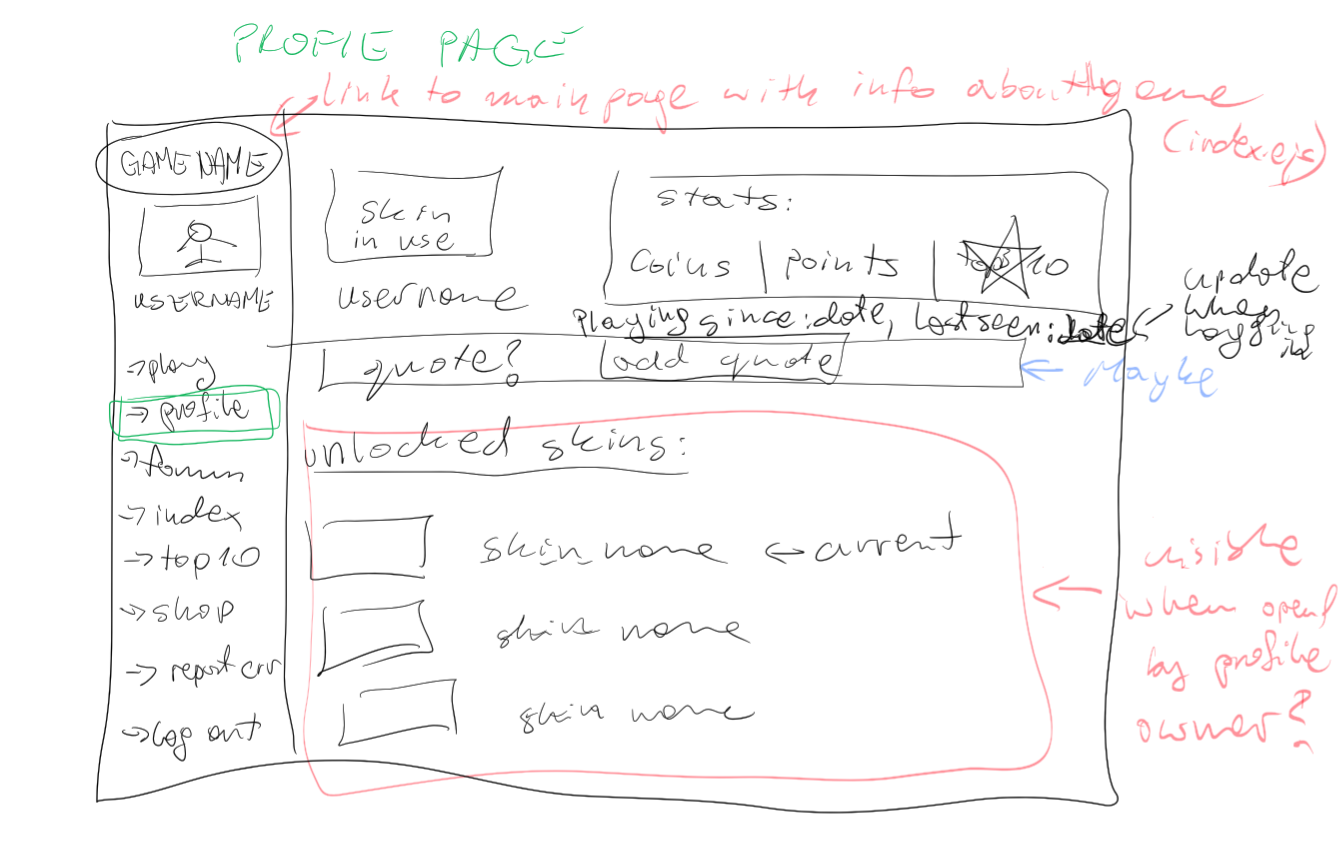 PROFIE PAGE
link to main page with info about game
(index.ejs)
GAME NAME
USERNAME
->play
-> profile
->forum
->index
->top10
->shop
-> report err
->log out
skin
in use
username
stats:
coins | points | top 10
Playing since: date, last seen: date
update
when
logging
in
quote? add quote
Maybe
unlocked skins:
skin name <- current
skin name
skin name
visible
when opend
by profile
owner?